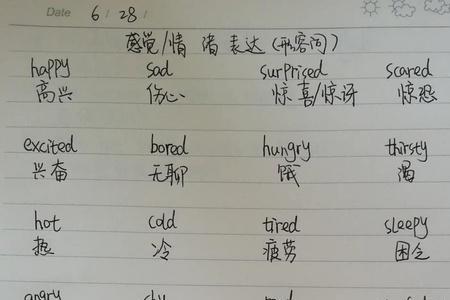 Date 6 / 28 /
感觉/情绪表达(形容词)
happy sad surprised scared
高兴 伤心 惊喜/惊讶 惊恐
excited bored hungry thirsty
兴奋 无聊 饿 渴
hot cold tired sleepy
热 冷 疲劳 困乏
angry shy